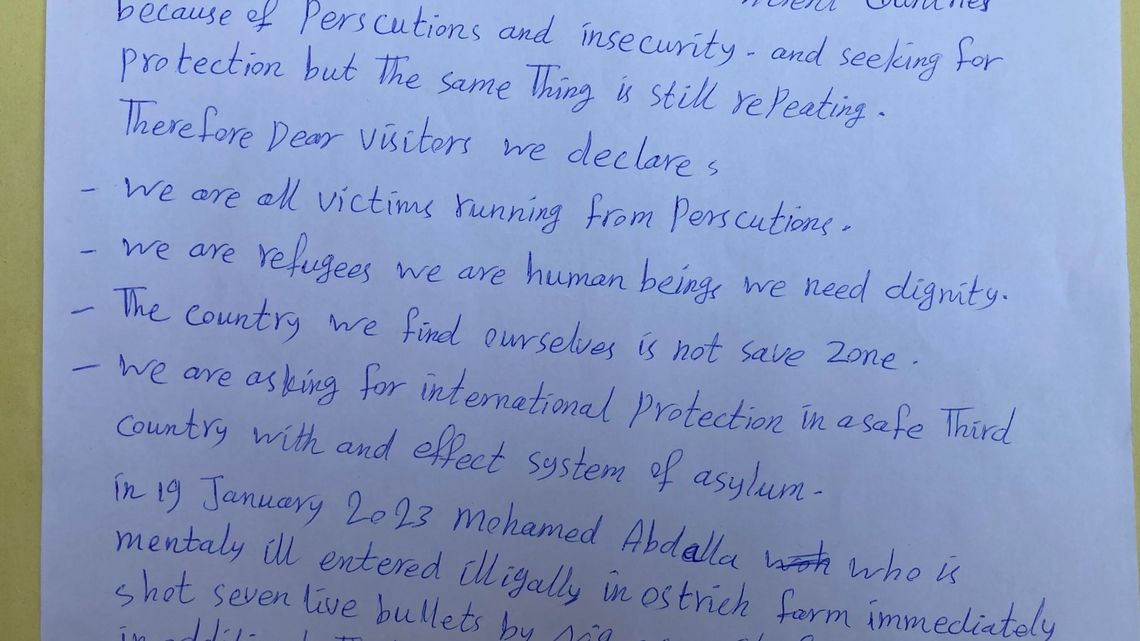 because of Perscutions and insecurity - and seeking for
protection but The same Thing is still repeating.
Therefore Dear visitors we declare s
- we are all victims running from Perscutions.
- we are refugees we are human beings we need dignity.
- The country we find ourselves is not save zone.
- we are asking for international protection in a safe Third
country with and effect system of asylum-
in 19 January 2023 Mohamed Abdalla who is
mentaly ill entered illigally in ostrich farm immediately
shot seven live bullets by